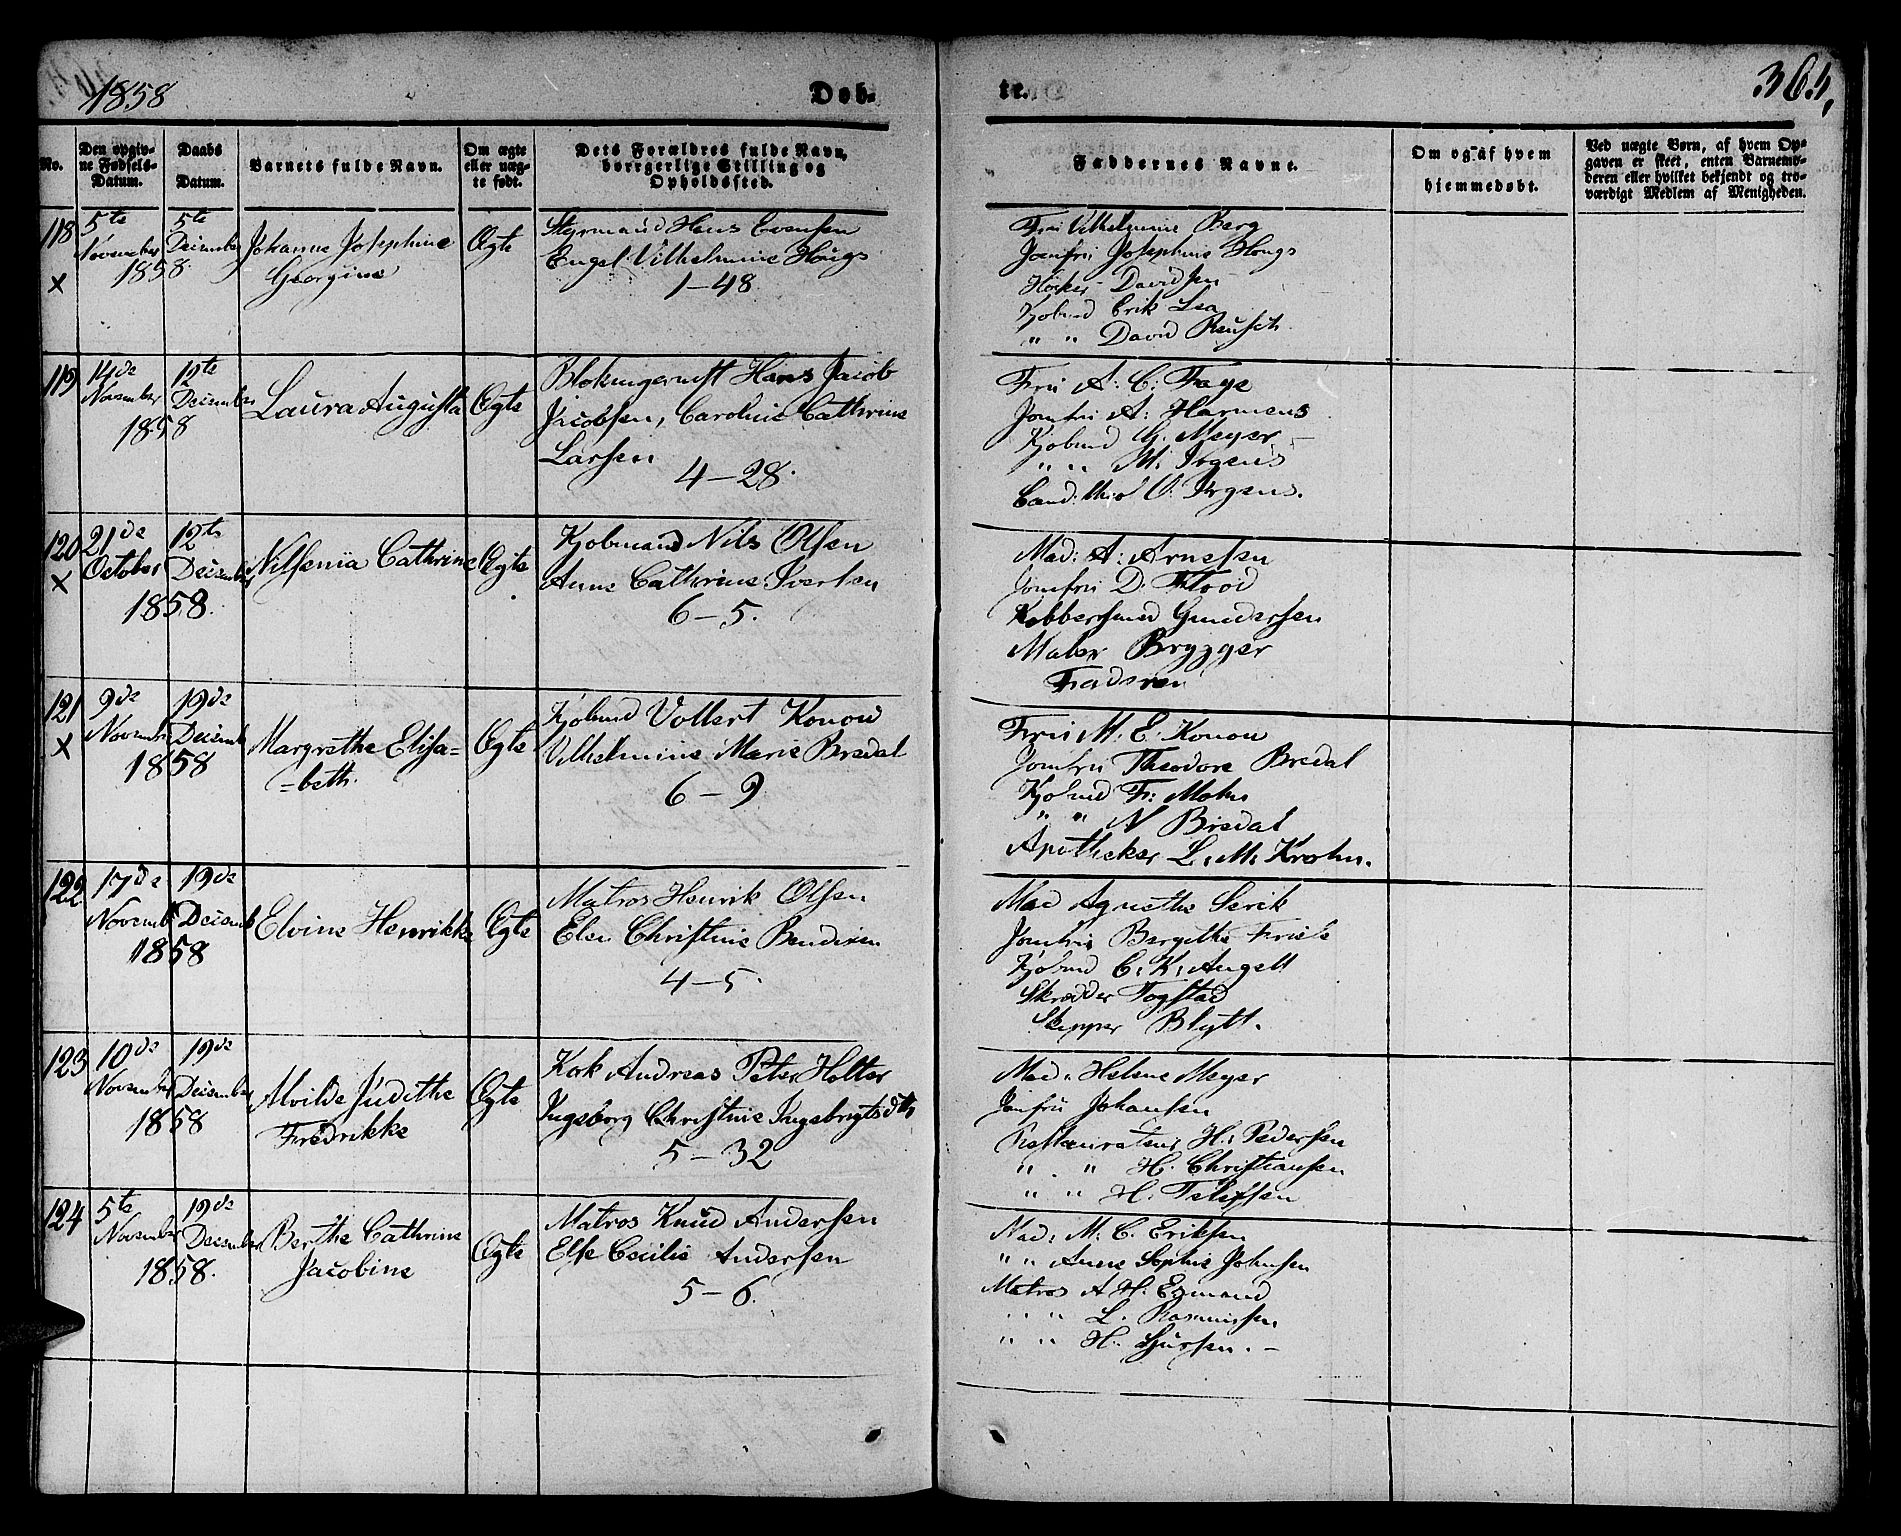 1858
Døb-
te.
365,
No.
Den opgiv-
ne Fødsels-
Datum.
Daabs
Datum.
Barnets fulde Navn.
Om ægte
eller uæg-
te født.
Dets Forældres fulde Navn,
borrgerlige Stilling og
Opholdssted.
Faddernes Navne.
Om og af hvem
hjemmedøbt.
Ved uægte Børn, af hvem Op-
gaven er skeet, enten Barnemo-
deren eller hvilket bekjendt og tro-
værdigt Medlem af Menigheden.
118
×
5te
November
5te
December
1858.
Johanne Josephine
Georgine
Ægte
Styrmand Hans Evensen
Engel Vilhelmine Hougs
1-48.
Fru Vilhelmine Berg
Jomfru Josephine Hougs
Høker Davidsen
Kjobmd Erik Lea
" " David Reusch.
119
14de
November
12te
December
1858
Laura Augusta
Ægte
Hans Jacob
Jacobsen, Caroline Cathrine
Larsen
4-28.
Fru A: C: Faye
Jomfru A: Harmens
Kjobmd G. Meyer
" " M: Irgens
Cand: O. Irgens.
120
×
21de
October
12te
December
1858.
Nilsenia Cathrine
Ægte
Kjobmand Nils Olsen
Anne Cathrine Iversen
6-5.
Mad: A: Arnesen
Jomfru D: Flood
Kobbersmed Gundersen
Maler Brygger
Faderen
121
×
9de
Novemb
19de
Decemb
1858
Margrethe Elisa=
=beth.
Ægte
Kjobmd Vollert Konow
Vilhelmine Marie Bredal
6-9
Fru M. E. Konow
Jomfru Theodore Bredal
Kjobmd Fr: Mohn
" " N Bredal
Apotheker L. M. Krohn.
122
17de
Novemb
19de
Decemb
1858
Elvine Henrikke
Ægte
Matros Henrik Olsen
Elen Christine Bendixen
4-5.
Mad Agnethe Serik
Jomfru Bergithe Friele
Kjobmd C. K. Angell
Skrædder Fogstad
Skipper Blytt.
123
10de
November
19de
December
1858
Alvilde Judithe
Fredrikke
Ægte
Kok Andreas Peter Holter
Ingeborg Christine Ingebrigtsdtr
5-32
Mad. Helene Meyer
Jomfru Johansen
Restaurateur H: Pedersen
" " H. Christiansen
" " H. Tellefsen
124
5te
November
19de
December
1858.
Berthe Cathrine
Jacobine
Ægte
Matros Knud Andersen
Else Cecilie Andersen
5-6.
Mad. M. C. Eriksen
" " Anne Sophie Johnsen
Matros A H. Egmand
" " L. Rasmussen
" " H. Sjursen.-